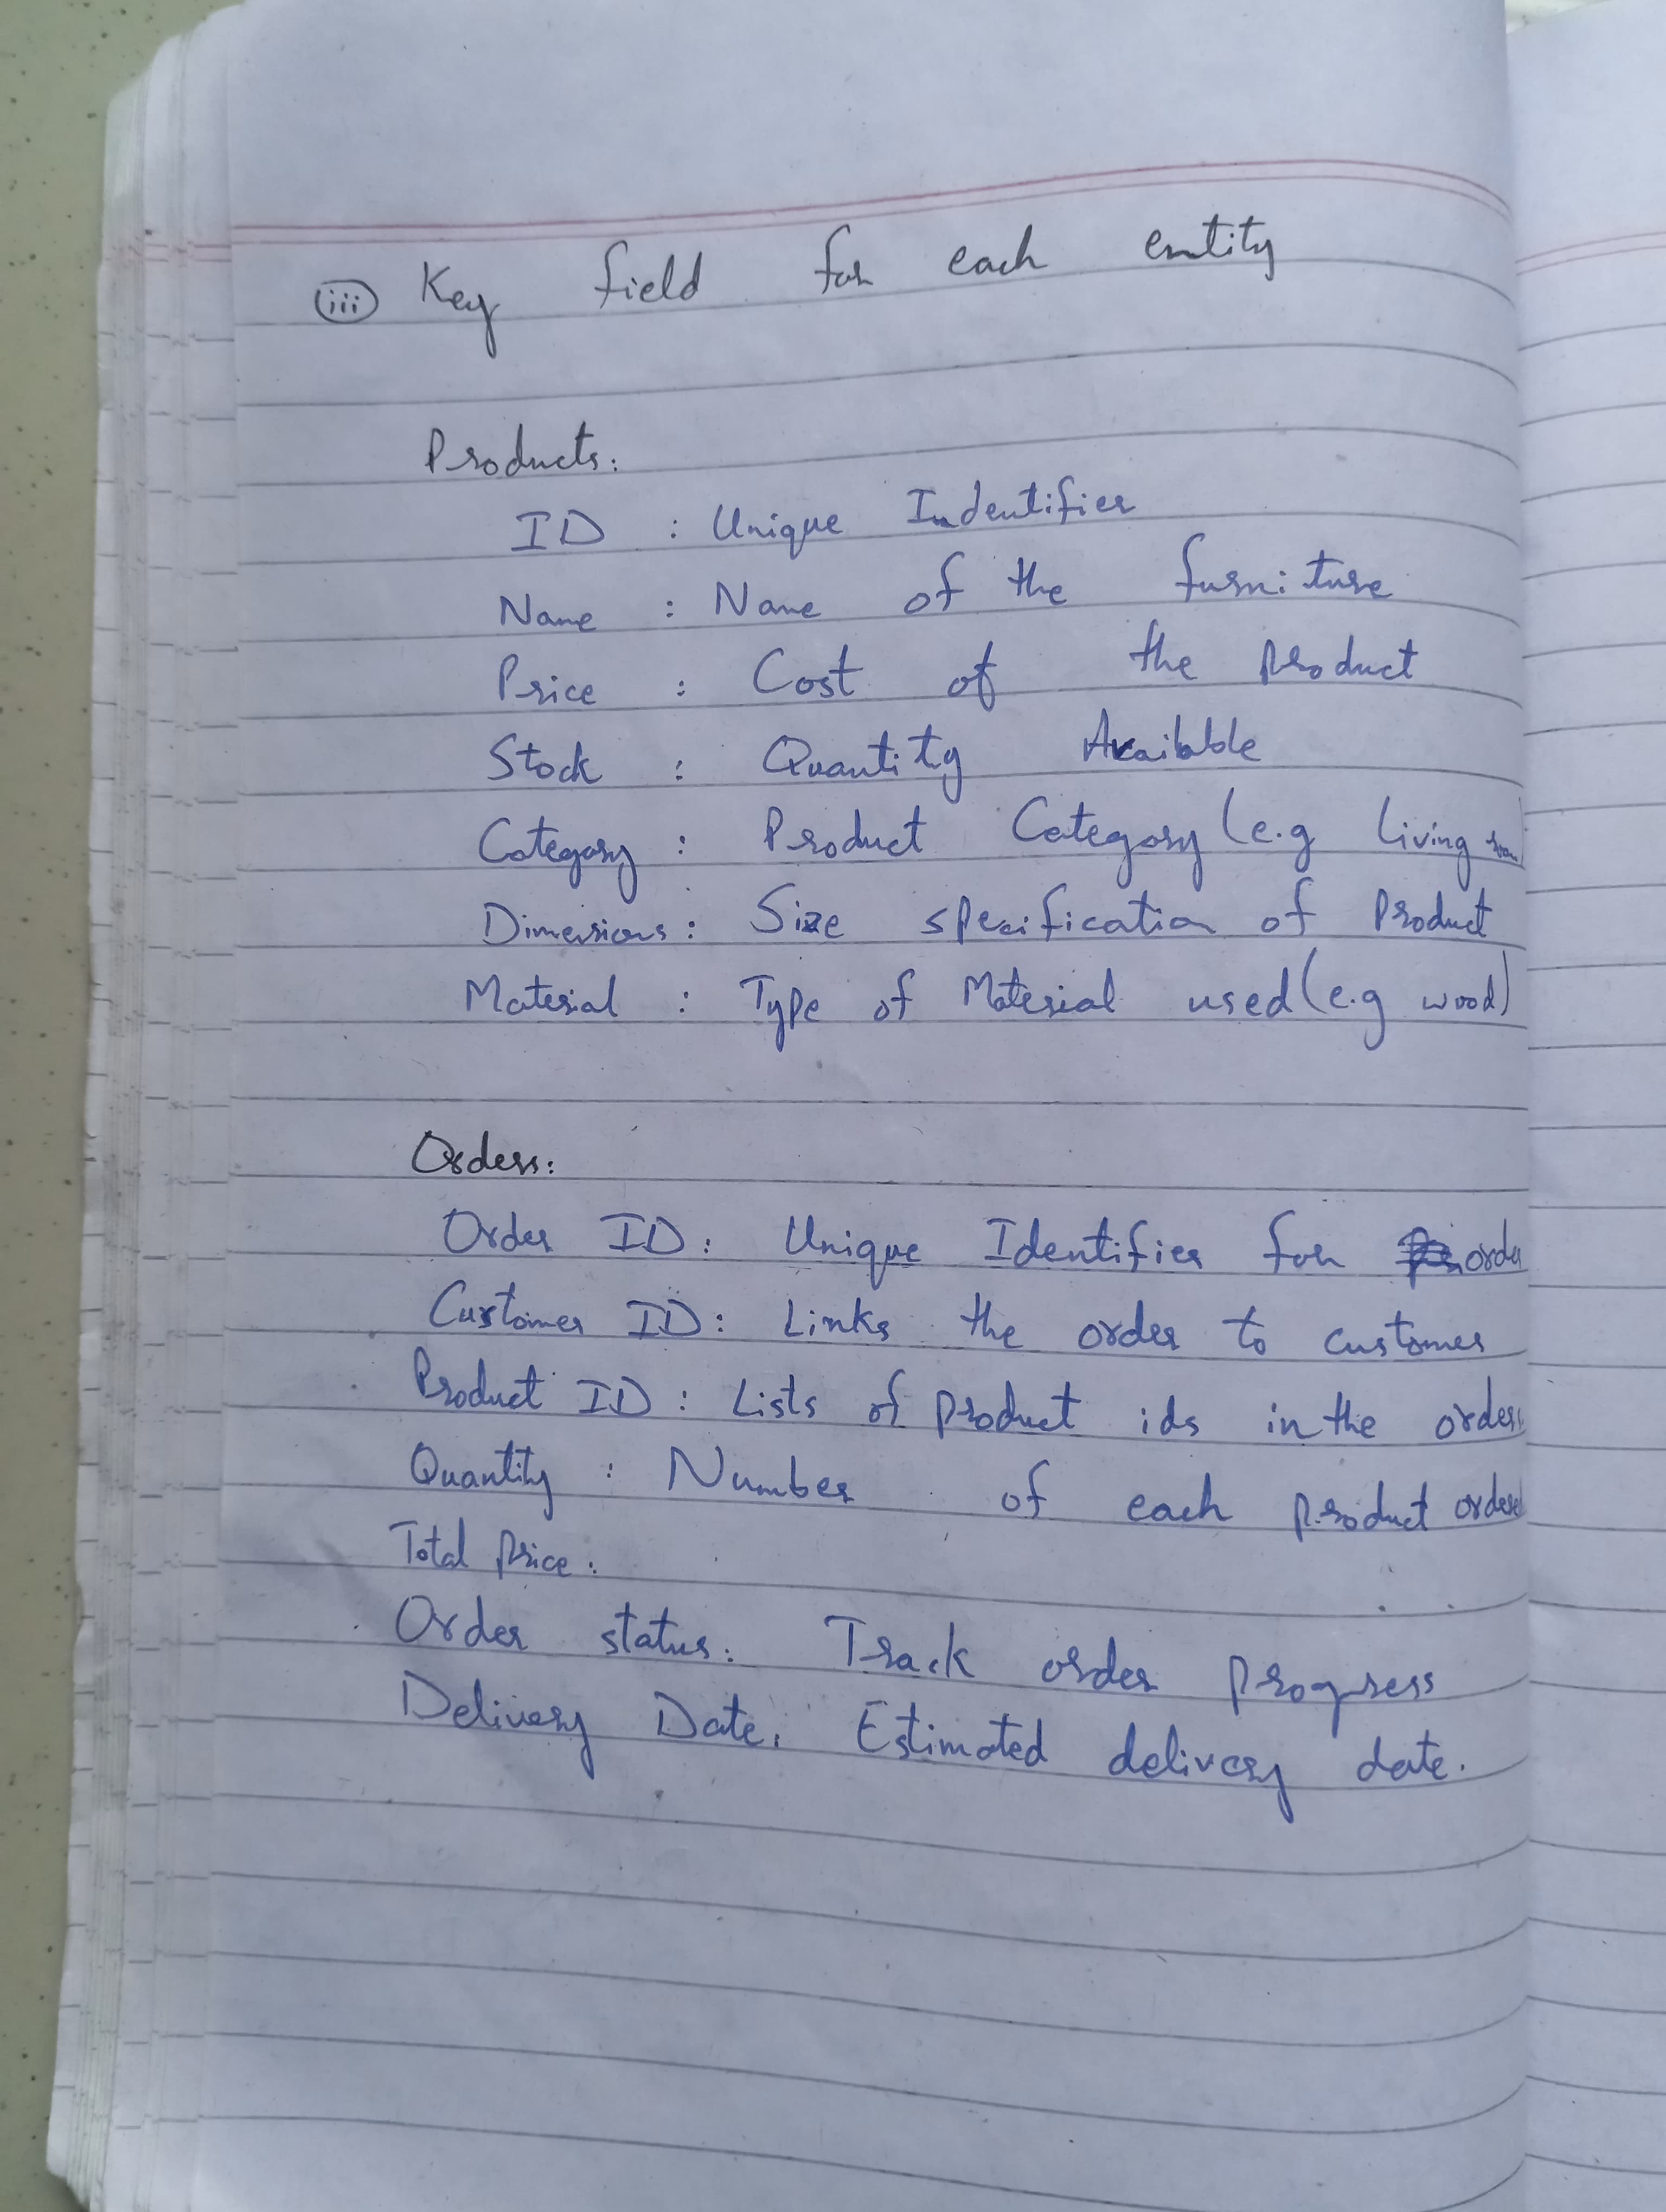 (iii) Key field for each entity
Products:
ID : Unique Indentifier
Name : Name of the furniture
Price : Cost of the product
Stock : Quantity Available
Category : Product Category (e.g living room
Dimensions : Size specification of Product
Material : Type of Material used (e.g wood)
Orders:
Order ID : Unique Identifier for order
Customer ID : Links the order to customer
Product ID : Lists of product ids in the order
Quantity : Number of each product ordered
Total price :
Order status : Track order progress
Delivery Date : Estimated delivery date.